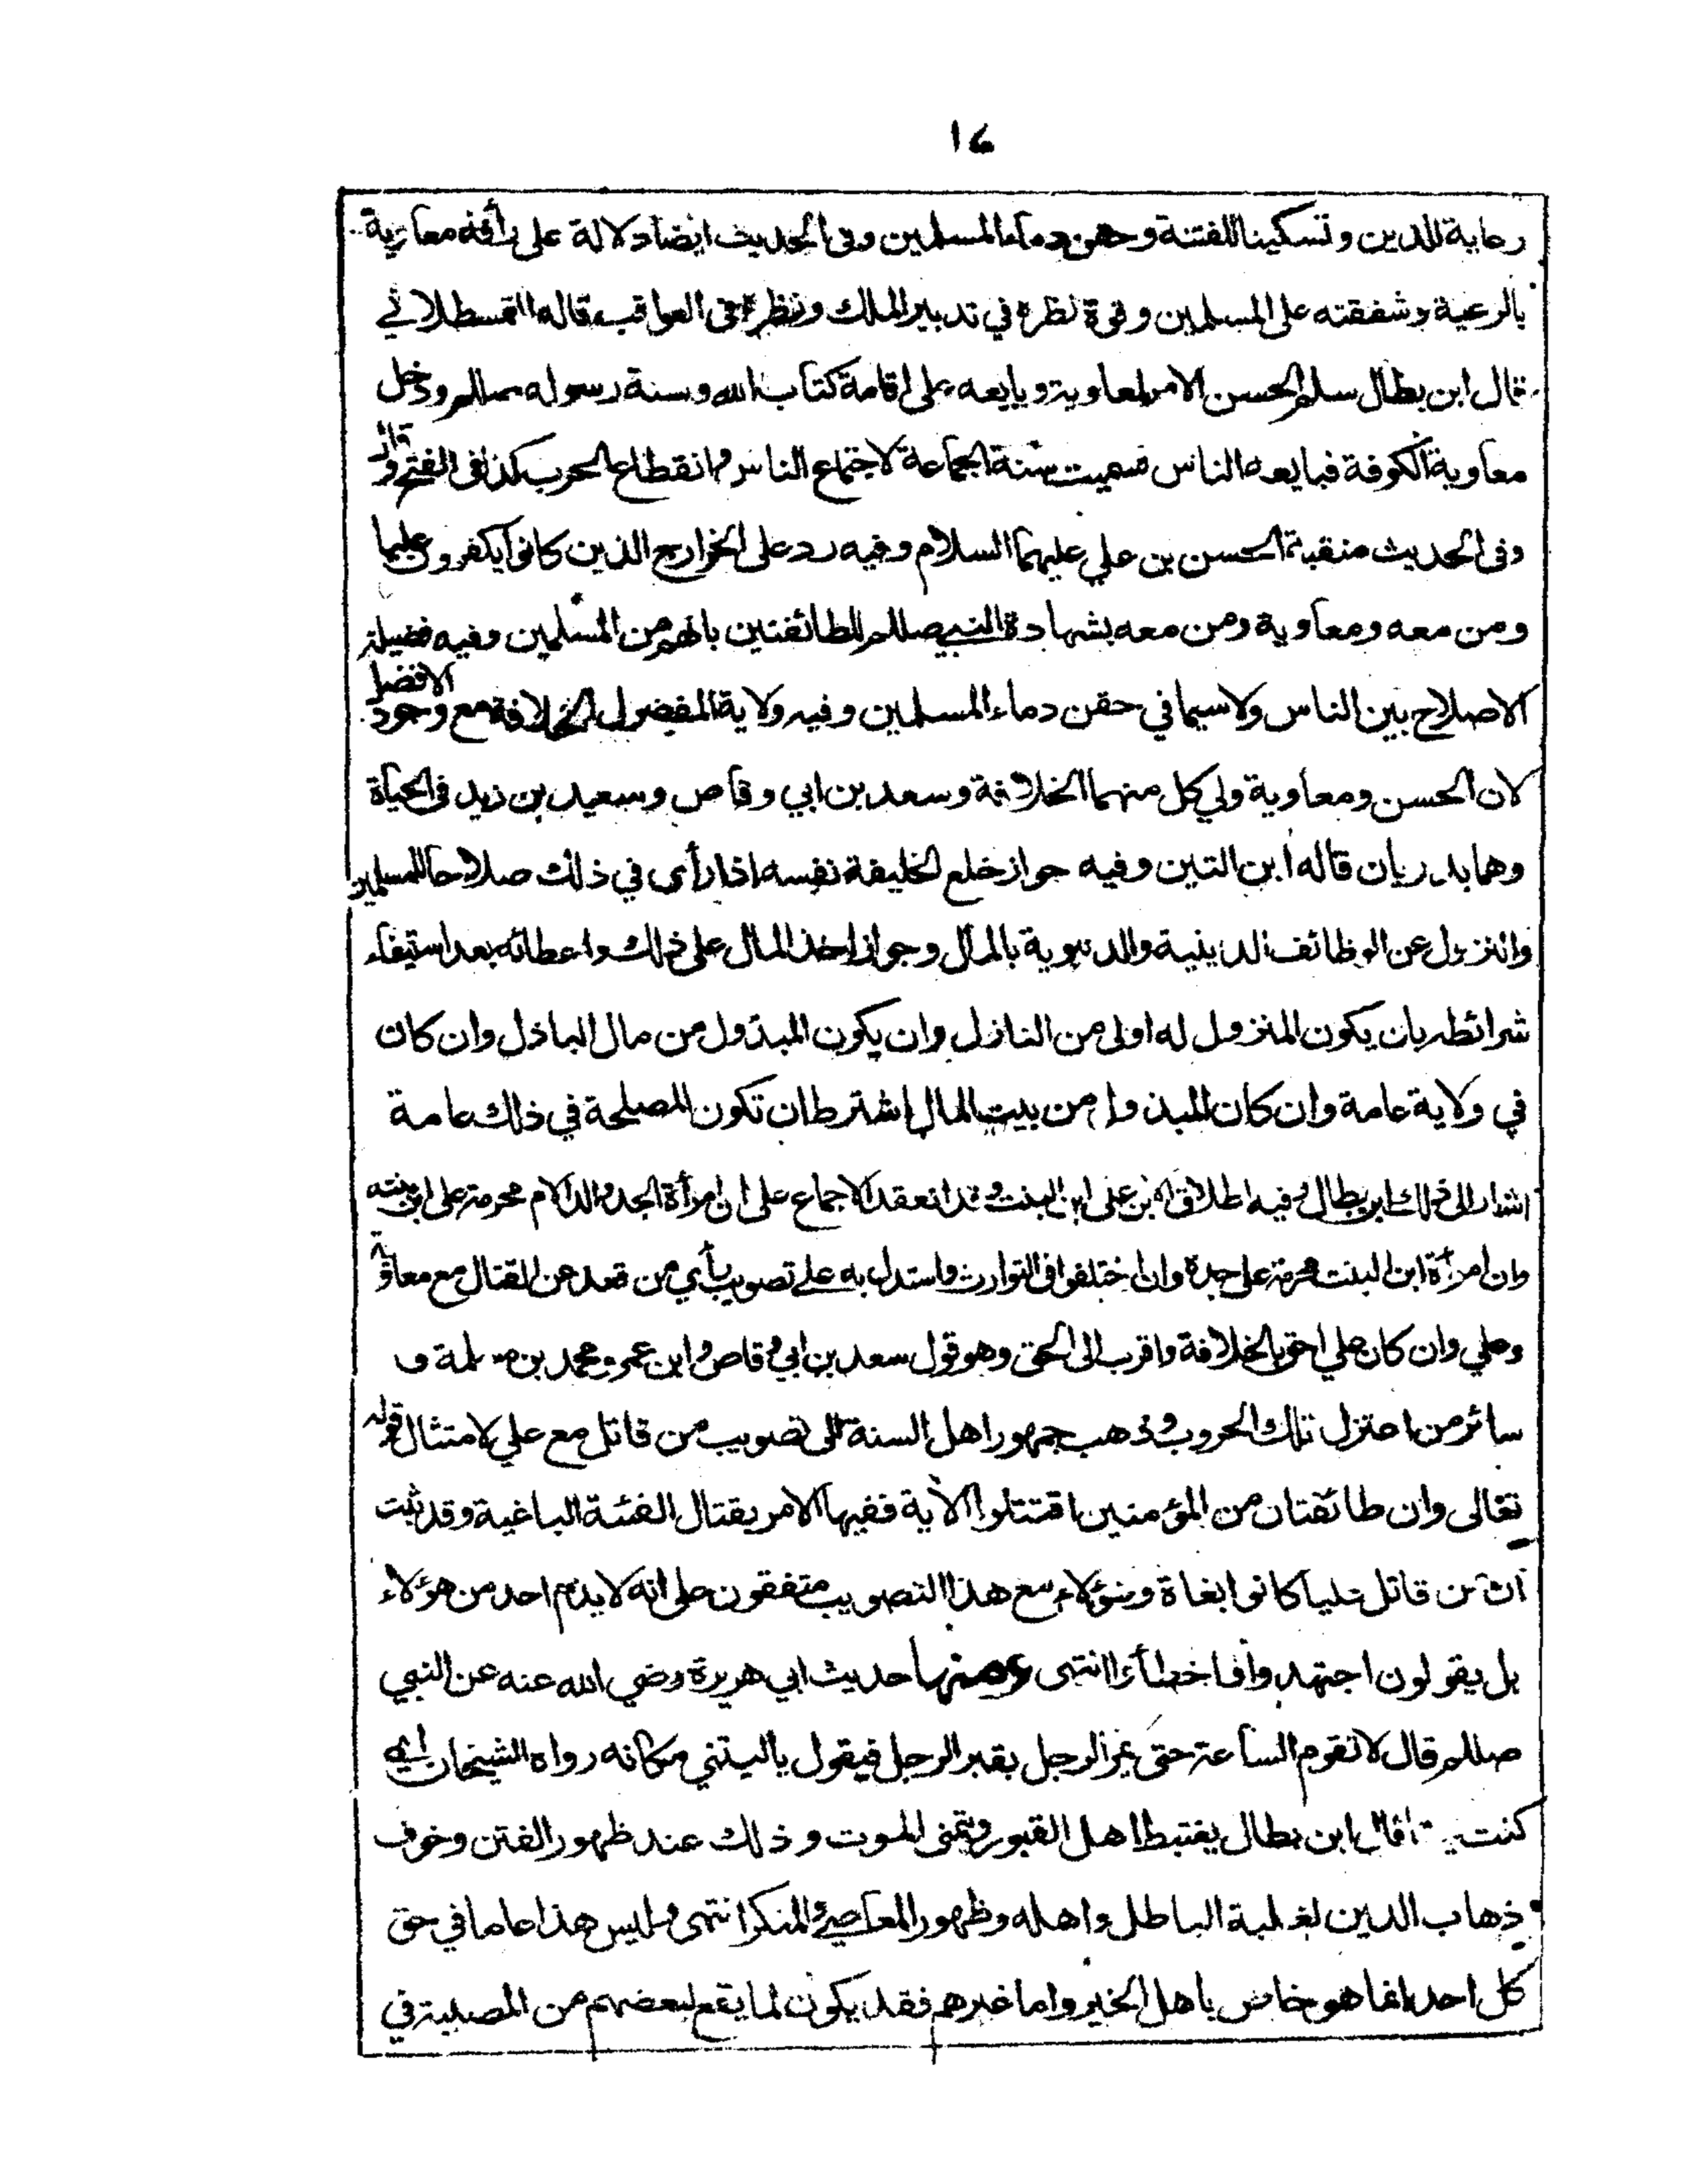 ١٤
رعاية للدين وتسكينا للفتنة وحقن دماء المسلمين وفي الحديث ايضا دلالة على رأفة معاوية
بالرعية وشفقته على المسلمين وقوة نظره في تدبير الملك ونظره في العواقب قاله القسطلاني
قال ابن بطال سلم الحسن الامر لمعاوية وبايعه على اقامة كتاب الله وسنة رسوله صللم ودخل
معاوية الكوفة فبايعه الناس فسميت سنة الجماعة لاجتماع الناس وانقطاع الحرب كذا في الفتح وقال
وفي الحديث منقبة الحسن بن علي عليهما السلام وفيه رد على الخوارج الذين كانوا يكفرون عليا
ومن معه ومعاوية ومن معه بشهادة النبي صللم للطائفتين بانهم من المسلمين وفيه فضيلة
الاصلاح بين الناس ولاسيما في حقن دماء المسلمين وفيه ولاية المفضول الخلافة مع وجود الافضل
لان الحسن ومعاوية ولي كل منهما الخلافة وسعد بن ابي وقاص وسعيد بن زيد في الحياة
وهما بدريان قاله ابن التين وفيه جواز خلع الخليفة نفسه اذا رأى في ذلك صلاحا للمسلمين
والنزول عن الوظائف الدينية والدنيوية بالمال وجواز اخذ المال على ذلك واعطائه بعد استيفاء
شرائطه بان يكون المنزول له اولى من النازل وان يكون المبذول من مال الباذل وان كان
في ولاية عامة وان كان المبذول من بيت المال اشترط ان تكون المصلحة في ذلك عامة
اشار الى ذلك ابن بطال وفيه اطلاق الابن على ابن البنت وقد انعقد الاجماع على ان امرأة الجد والد الام محرمة على ابن بنته
وان امرأة ابن البنت محرمة على جده وان اختلفوا في التوارث واستدل به على تصويب رأي من قعد عن القتال مع معاوية
وعلي وان كان علي احق بالخلافة واقرب الى الحق وهو قول سعد بن ابي وقاص وابن عمر ومحمد بن مسلمة و
سائر من اعتزل تلك الحروب وذهب جمهور اهل السنة الى تصويب من قاتل مع علي لامتثال قوله
تعالى وان طائفتان من المؤمنين اقتتلوا الآية ففيها الامر بقتال الفئة الباغية وقد ثبت
ان من قاتل عليا كانوا بغاة وهؤلاء مع هذا التصويب متفقون على انه لا يذم احد من هؤلاء
بل يقولون اجتهدوا فاخطأوا انتهى ومنها حديث ابي هريرة رضي الله عنه عن النبي
صللم قال لا تقوم الساعة حتى يمر الرجل بقبر الرجل فيقول ياليتني مكانه رواه الشيخان اي
كنت ميتا قال ابن بطال يغتبط اهل القبور وتمنى الموت وذلك عند ظهور الفتن وخوف
ذهاب الدين لغلبة الباطل واهله وظهور المعاصي والمنكر انتهى وليس هذا عاما في حق
كل احد وانما هو خاص باهل الخير واما غيرهم فقد يكون لما يقع لبعضهم من المصيبة في